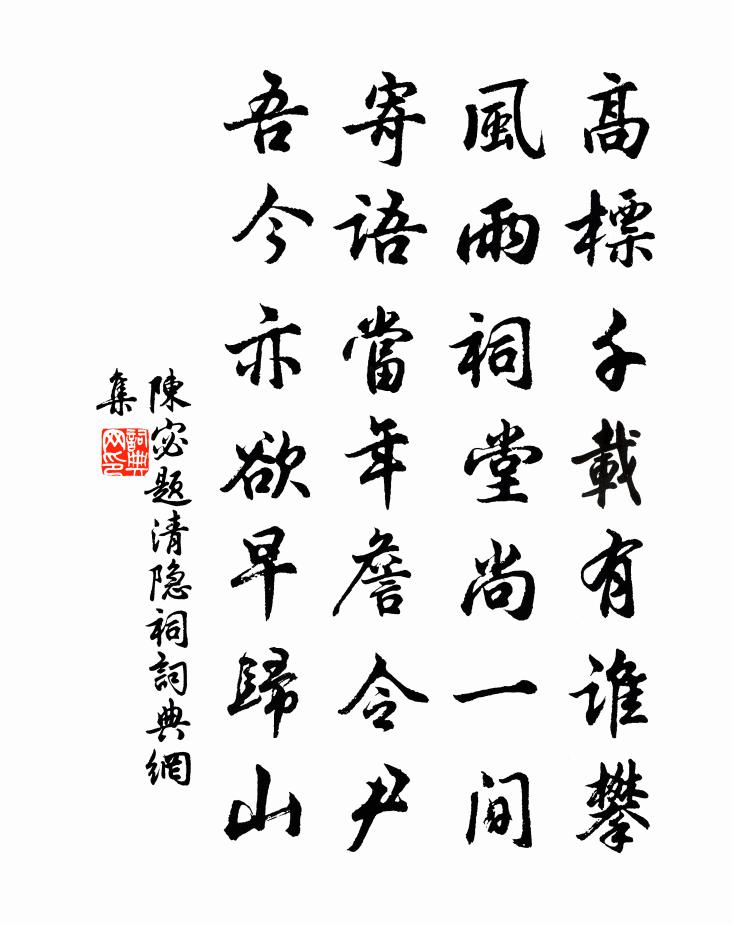 高標千載有誰攀
風雨祠堂尚一间
寄語當年詹令尹
吾今亦欲早歸山
陳宓题清隐祠詞典網
集
詞典
网印